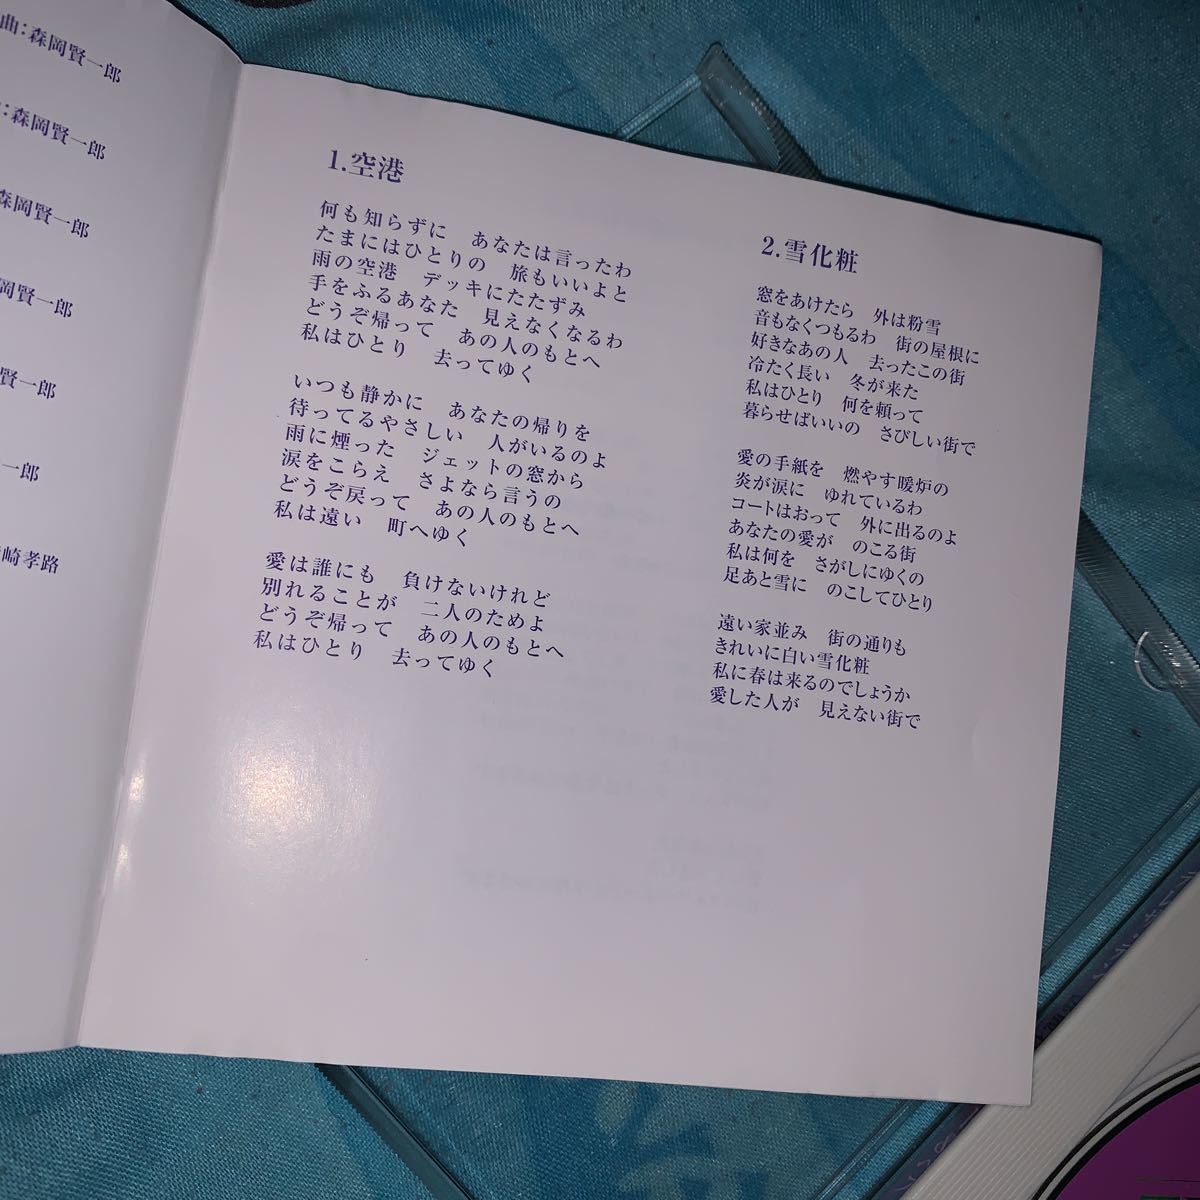 曲：森岡賢一郎
：森岡賢一郎
森岡賢一郎
岡賢一郎
賢一郎
一郎
崎孝路
1.空港
何も知らずに　あなたは言ったわ
たまにはひとりの　旅もいいよと
雨の空港　デッキにたたずみ
手をふるあなた　見えなくなるわ
どうぞ帰って　あの人のもとへ
私はひとり　去ってゆく
いつも静かに　あなたの帰りを
待ってるやさしい　人がいるのよ
雨に煙った　ジェットの窓から
涙をこらえ　さよなら言うの
どうぞ戻って　あの人のもとへ
私は遠い　町へゆく
愛は誰にも　負けないけれど
別れることが　二人のためよ
どうぞ帰って　あの人のもとへ
私はひとり　去ってゆく
2.雪化粧
窓をあけたら　外は粉雪
音もなくつもるわ　街の屋根に
好きなあの人　去ったこの街
冷たく長い　冬が来た
私はひとり　何を頼って
暮らせばいいの　さびしい街で
愛の手紙を　燃やす暖炉の
炎が涙に　ゆれているわ
コートはおって　外に出るのよ
あなたの愛が　のこる街
私は何を　さがしにゆくの
足あと雪に　のこしてひとり
遠い家並み　街の通りも
きれいに白い雪化粧
私に春は来るのでしょうか
愛した人が　見えない街で